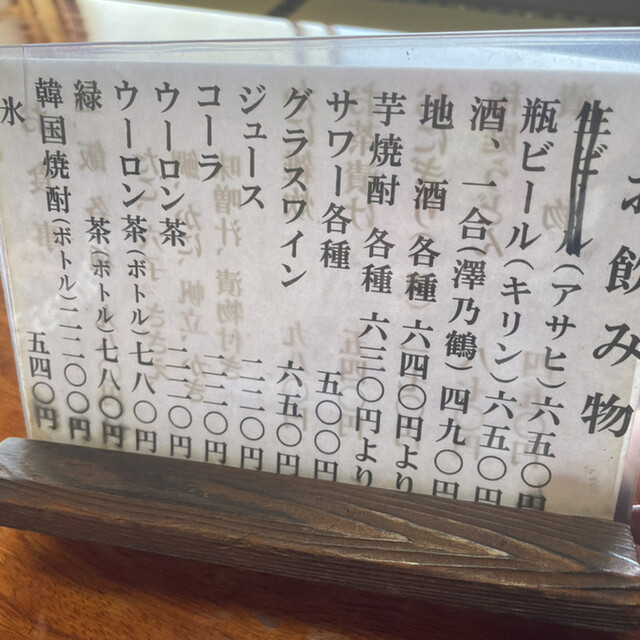 お飲み物
生ビール（アサヒ）六五〇円
瓶ビール（キリン）六五〇円
酒、一合（澤乃鶴）四九〇円
地酒各種 六四〇円より
芋焼酎 各種 六三〇円より
サワー各種 五〇〇円
グラスワイン 六五〇円
ジュース 二二〇円
コーラ 二二〇円
ウーロン茶 二二〇円
ウーロン茶（ボトル）七八〇円
緑茶（ボトル）七八〇円
韓国焼酎（ボトル）二二〇〇円
氷 五四〇円